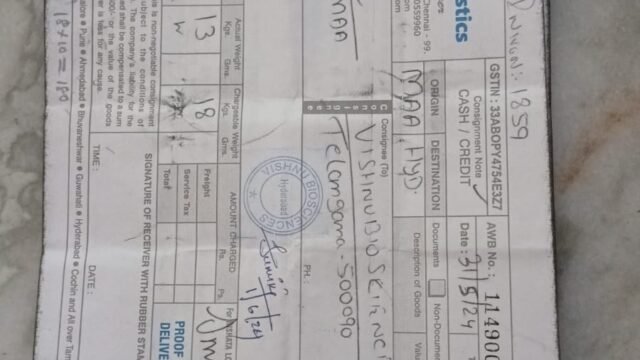 NWGN:- 1859
GSTIN : 33ABOPY4754E3Z7
Consignment Note
CASH / CREDIT ✓
AWB No. : 114900
Date : 31/5/24
stics
Chennai - 99.
0559960
com
ORIGIN
DESTINATION
MAA
HYD
Documents
Non-Docume
Description of Goods
Valu
MAA
Consignee
Consignee (To)
VISHNU BIOSCIENC
Telangana - 500090
PH. :
Actual Weight
Kgs.
Gms.
13
W
Chargeable Weight
Kgs.
Gms.
18
AMOUNT CHARGED
Rs.
Ps.
Freight
Service Tax
Total
VISHNU BIOSCIENCES
Hyderabad
1/6/24
is non-negotiable consignment
ubject to the condition of
. The company's liability for the
ed shall be compensated to a sum
00/- or the value of the goods
er is less for any cause.
SIGNATURE OF RECEIVER WITH RUBBER STAM
PROOF
DELIVE
TIME :
DATE :
alore ● Pune ● Ahmedabad ● Bhuvaneshwar ● Guwahati ● Hyderabad ● Cochin and All over Tam
18 x 10 = 180